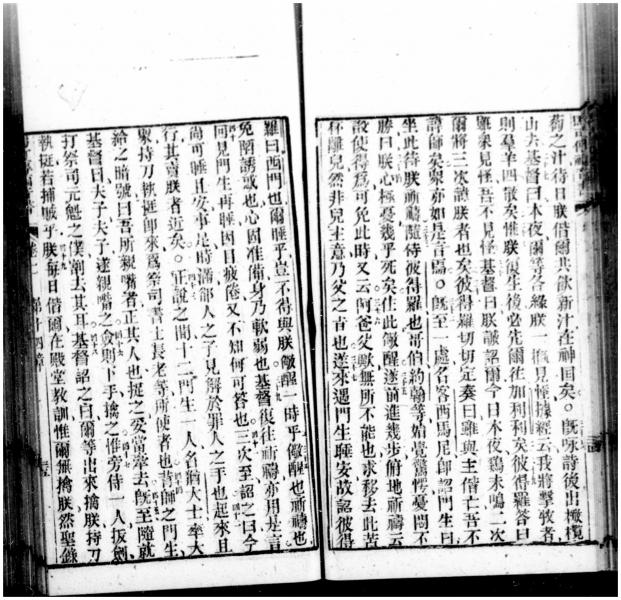 萄之汁待日朕偕爾共飲新汁在神國矣。旣咏詩後出橄欖
山去基督曰本夜爾等各緣朕一槪見怪據經云我將擊牧者
則羣羊四散矣惟朕復生後必先爾往加利利矣彼得羅答曰
雖衆見怪吾不見怪基督曰朕誠詔爾今日本夜鷄未鳴二次
爾將三次諱朕者也矣彼得羅切切定奏曰雖與主偕亡吾不
諱師矣衆亦如是言焉。旣至一處名客西馬尼師詔門生曰
坐此待朕祈禱隨待彼得羅也哥伯約翰等始覺驚愕憂悶不
勝曰朕心極憂幾乎死矣住此儆醒遂前進幾步俯地祈禱云
設使得爲可免此時又云阿爸父歟無所不能也求移去此苦
杯離兒然非兒主意乃父之旨也遂來遇門生睡安故詔彼得
羅曰西門也爾睡乎豈不得與朕儆醒一時乎儆醒也祈禱也
免陷誘惑也心固准備身乃軟弱也基督復往祈禱亦用是言
回見門生再睡因目疲倦又不知何可答也三次至詔之曰今
尙可睡且安事是時滿部人之子見解於罪人之手也起來且
行其賣朕者近矣。正說之間十二門生一人名猶大士率大
衆持刀執挺卽來爲祭司書士長老等所使者也賣師之門生
給之暗號曰吾所親嘴者正其人也捉之妥當牽去旣至隨就
基督曰夫子夫子遂親嘴之僉則下手擒之惟旁侍一人拔劍
打祭司元魁之僕削去其耳基督詔之曰爾等出來擒朕持刀
執挺若捕賊乎朕每日偕爾在殿堂敎訓惟爾無擒朕然聖錄
第十四章